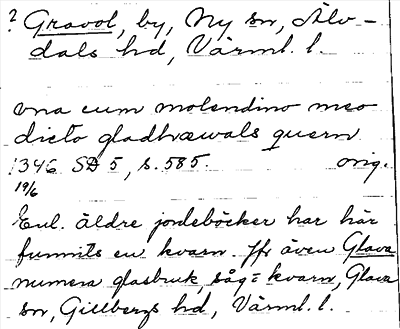 ? Gravol, by, Ny sn, Älv-
dals hd, Värml. l.
una cum molendino meo
dicto gladhræwals quern
1346 SD 5, s. 585. orig.
19/6
Enl. äldre jordeböcker har här
funnits en kvarn. Jfr även Glava
numera glasbruk, såg= kvarn, Glava
sn, Gillbergs hd, Värml. l.